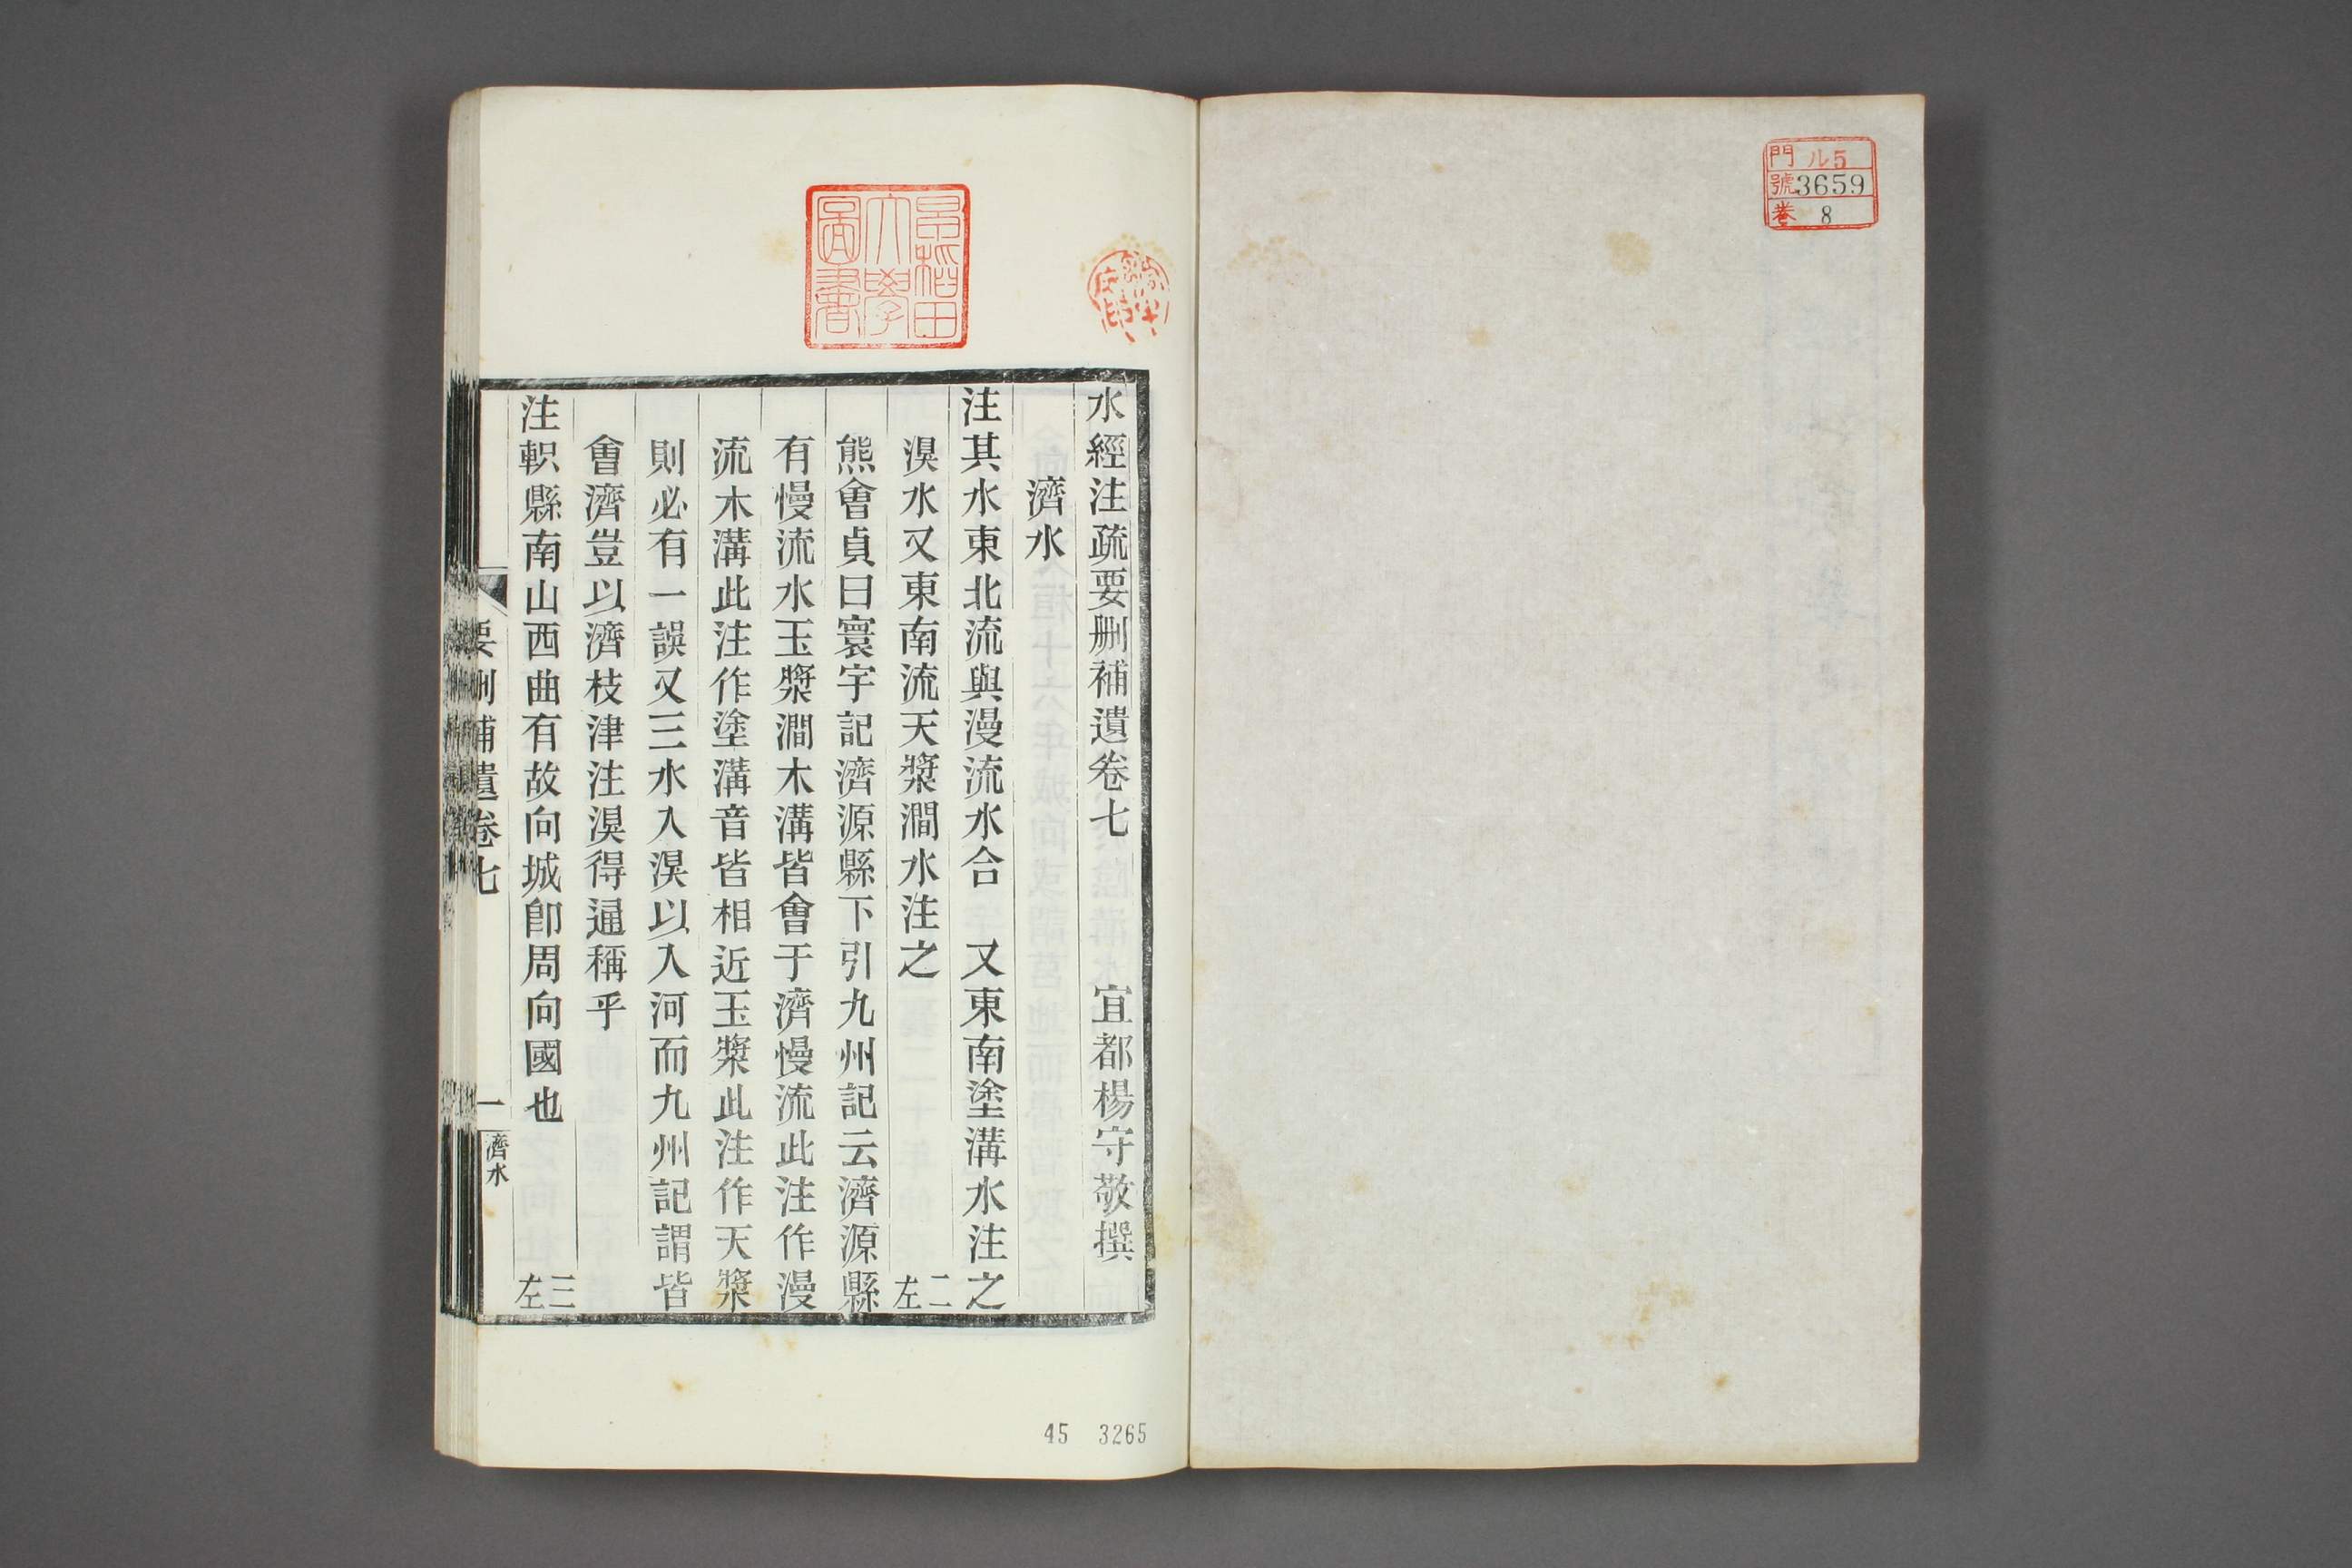 門 ル5
號 3659
卷 8
早稲田大學圖書
水經注疏要刪補遺卷七　宜都楊守敬撰
濟水
注其水東北流與漫流水合　又東南塗溝水注之
湨水又東南流天漿澗水注之　二左
熊會貞曰寰宇記濟源縣下引九州記云濟源縣
有慢流水玉漿澗木溝皆會于濟慢流此注作漫
流木溝此注作塗溝音皆相近玉漿此注作天漿
則必有一誤又三水入湨以入河而九州記謂皆
會濟豈以濟枝津注湨得通稱乎
注軹縣南山西曲有故向城卽周向國也　三左
要刪補遺卷七　一　濟水
45 3265